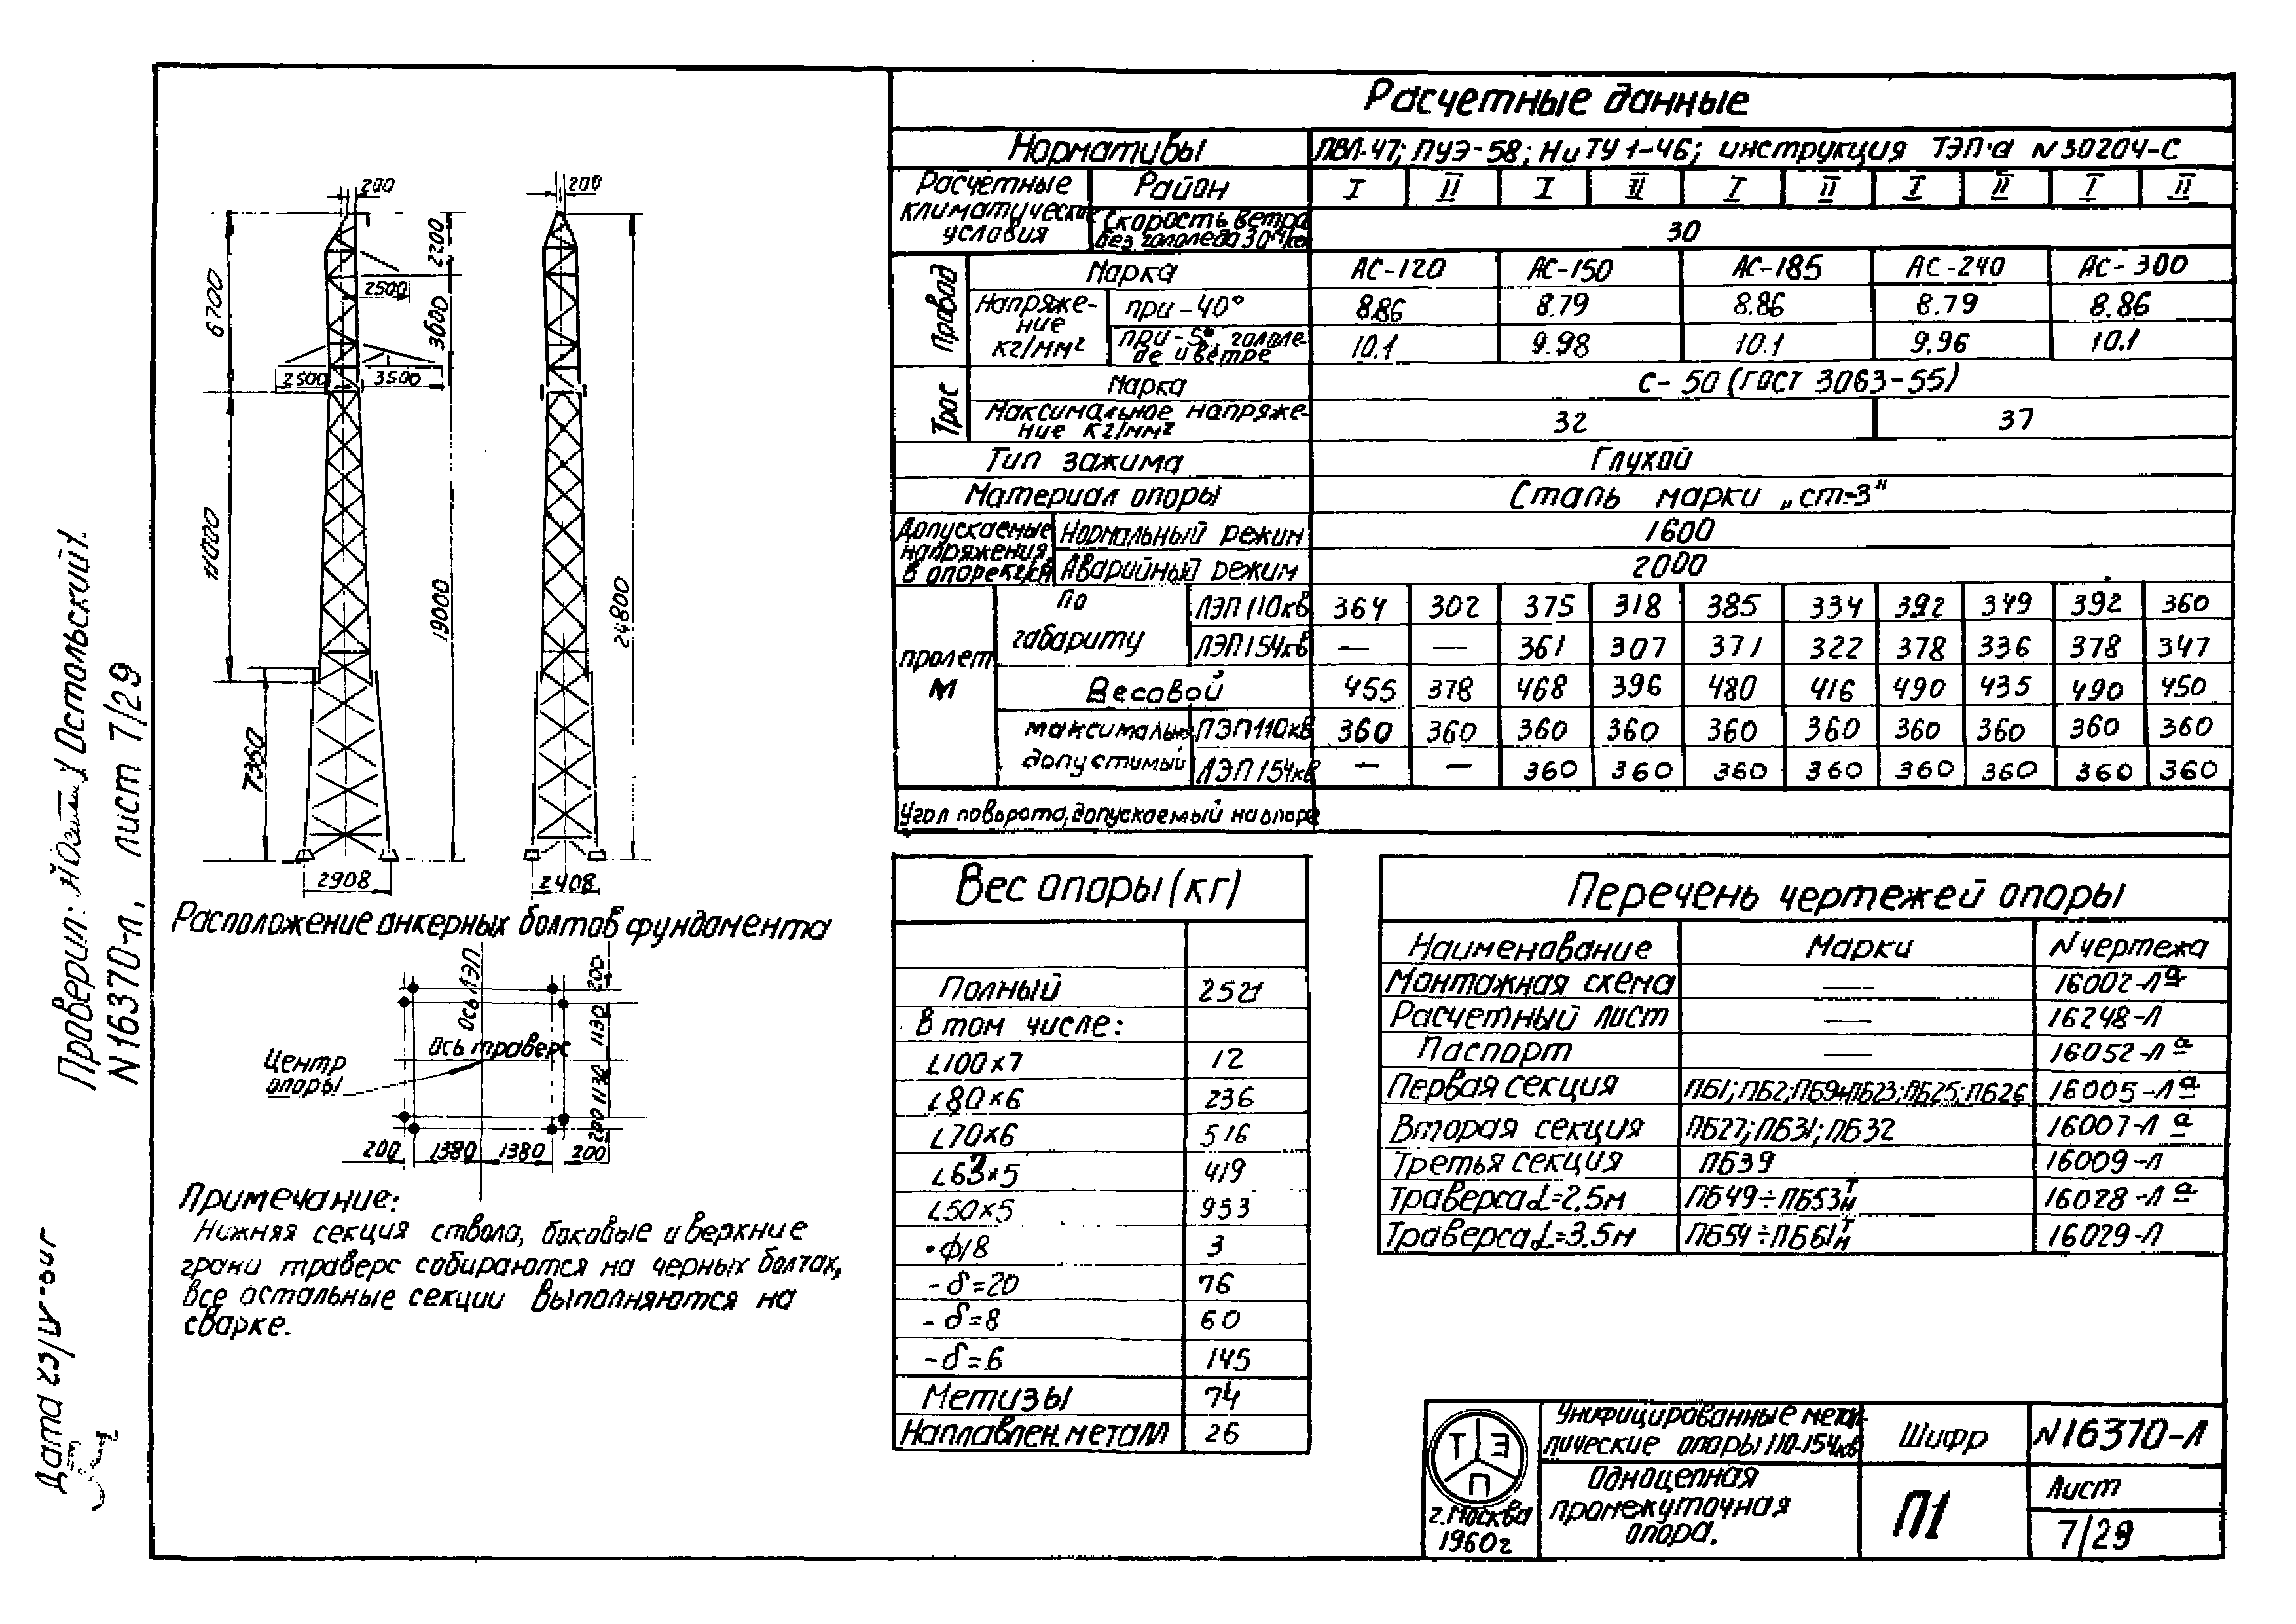 Расчетные данные
Нормативы ПВЛ-47; ПУЭ-58; НиТУ 1-46; инструкция ТЭП'а N 30204-С
Расчетные климатические условия Район I II I II I II I II I II
Скорость ветра без гололеда 30 м/сек 30
Провод Марка АС-120 АС-150 АС-185 АС-240 АС-300
Напряже-
ние
кг/мм² при -40° 8.86 8.79 8.86 8.79 8.86
при -5° гололе-
де и ветре 10.1 9.98 10.1 9.96 10.1
Трос Марка С-50 (ГОСТ 3063-55)
Максимальное напряже-
ние кг/мм² 32 37
Тип зажима Глухой
Материал опоры Сталь марки „ст-3"
Допускаемые
напряжения
в опоре кг/см² Нормальный режим 1600
Аварийный режим 2000
пролет
м По габариту ЛЭП 110кв 364 302 375 318 385 334 392 349 392 360
ЛЭП 154кв — — 361 307 371 322 378 336 378 347
Весовой 455 378 468 396 480 416 490 435 490 450
максимально допустимый ЛЭП 110кв 360 360 360 360 360 360 360 360 360 360
ЛЭП 154кв — — 360 360 360 360 360 360 360 360
Угол поворота, допускаемый на опоре
200
200
6700
2200
2500
3600
2500 3500
11000
19000
24800
7360
2908
2408
Расположение анкерных болтов фундамента
Ось ЛЭП
200
1130
Ось траверс
Центр
опоры
1130
200
200 1380 1380 200
Примечание:
Нижняя секция ствола, боковые и верхние
грани траверс собираются на черных болтах,
все остальные секции выполняются на
сварке.
Вес опоры (кг)
Полный 2521
В том числе:
L100×7 12
L80×6 236
L70×6 516
L63×5 419
L50×5 953
•ф18 3
-δ=20 76
-δ=8 60
-δ=6 145
Метизы 74
Наплавлен. металл 26
Перечень чертежей опоры
Наименование Марки N чертежа
Монтажная схема — 16002-Лª
Расчетный лист — 16248-Л
Паспорт — 16052-Лª
Первая секция ПБ1; ПБ2; ПБ9÷ПБ23; ПБ25; ПБ26 16005-Лª
Вторая секция ПБ27; ПБ31; ПБ32 16007-Лª
Третья секция ПБ39 16009-Л
Траверса L=2.5м ПБ49÷ПБ53т/н 16028-Лª
Траверса L=3.5м ПБ54÷ПБ61т/н 16029-Л
ТЭП
г. Москва
1960г
Унифицированные метал-
лические опоры 110-154кв
Шифр
N16370-Л
Одноцепная
промежуточная
опора.
П1
Лист
7/29
Проверил: Остольский
N16370-л, лист 7/29
Дата